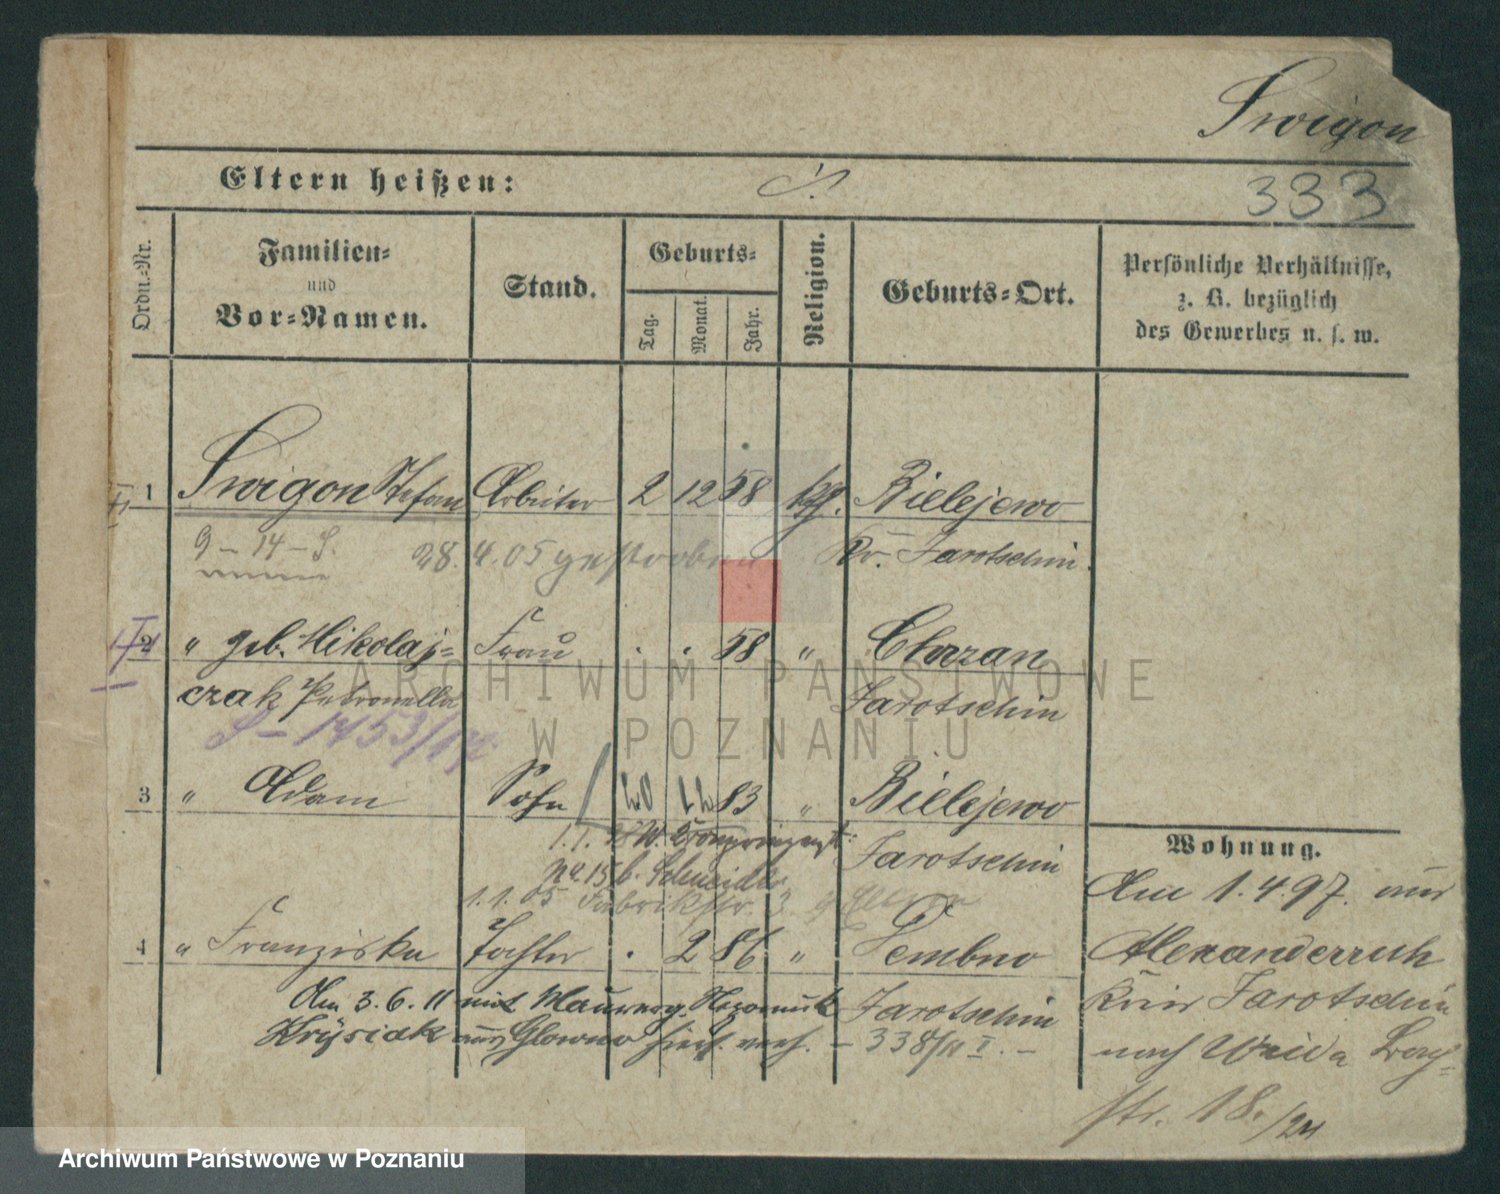 Swigon
Eltern heißen:
333
Ordn.-Nr.
Familien-
und
Vor-Namen.
Stand.
Geburts-
Tag.
Monat.
Jahr.
Religion.
Geburts-Ort.
Persönliche Verhältnisse,
z. B. bezüglich
des Gewerbes u. s. w.
1 Swigon Stefan Arbeiter 2 12 58 kth. Bielejewo
9 – 14 – S. 28. 4. 05 gestorben Kr. Jarotschin
2 " geb. Mikolaj= Frau . . 58 " Chrzan
czak Petronella Jarotschin
3 " Adam Sohn 20 12 83 " Bielejewo
1. 1. Kronprinzenst:
No. 15 b. Schneider Jarotschin
1. 1. 05 Fabrikstr. 3
4 " Franziska Tochter . 2 86 " Dembno
Am 3. 6. 11 mit Maurerg. Nepomuk Jarotschin
Krysiak aus Glowno hier verh. – 338/11 I. –
Wohnung.
Am 1. 4. 97. aus
Alexanderruh
Kreis Jarotschin
nach
str. 18. /24
ARCHIWUM PAŃSTWOWE
W POZNANIU
Archiwum Państwowe w Poznaniu